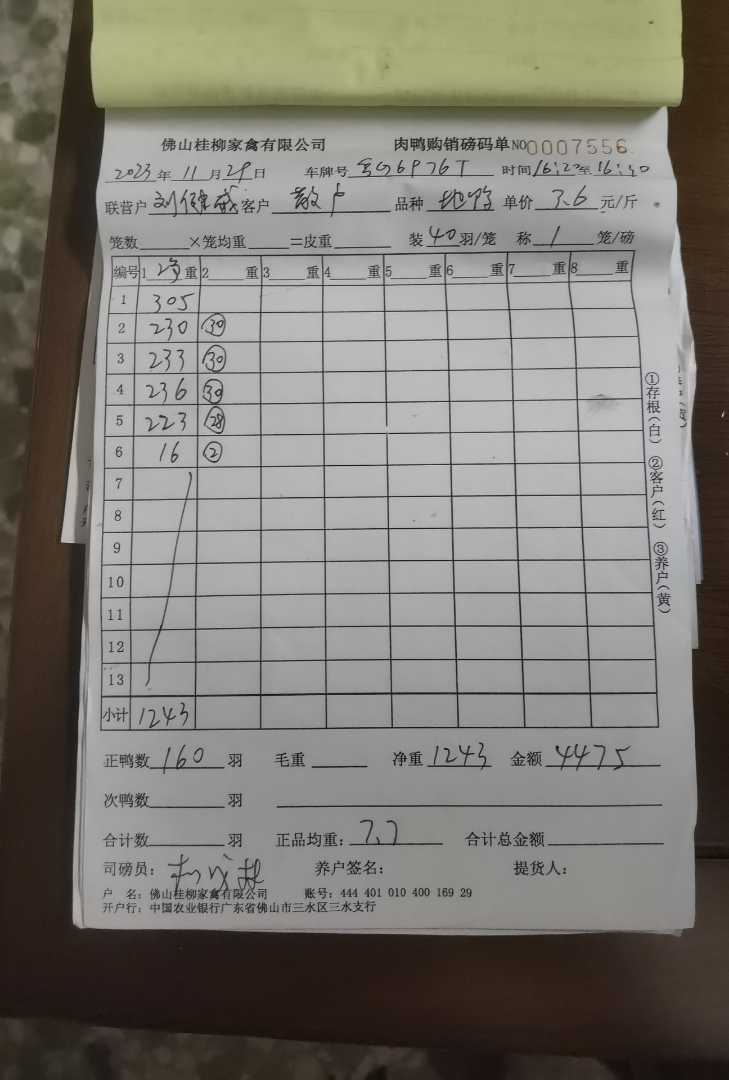 佛山桂柳家禽有限公司 肉鸭购销磅码单 NO 0007556
2023年11月29日 车牌号 G6P76T 时间16:20至16:40
联营户 刘健威 客户 散户 品种 单价 3.6 元/斤
笼数 ×笼均重 =皮重 装 40 羽/笼 称 1 笼/磅
编号 1 净重 2 重 3 重 4 重 5 重 6 重 7 重 8 重
1 305
2 230 30
3 233 30
4 236 30
5 223 28
6 16 2
7
8
9
10
11
12
13
小计 1243
正鸭数 160 羽 毛重 净重 1243 金额 4475
次鸭数 羽
合计数 羽 正品均重: 7.7 合计总金额
司磅员: 养户签名: 提货人:
户 名: 佛山桂柳家禽有限公司 账号: 444 401 010 400 169 29
开户行: 中国农业银行广东省佛山市三水区三水支行
①存根(白) ②客户(红) ③养户(黄)